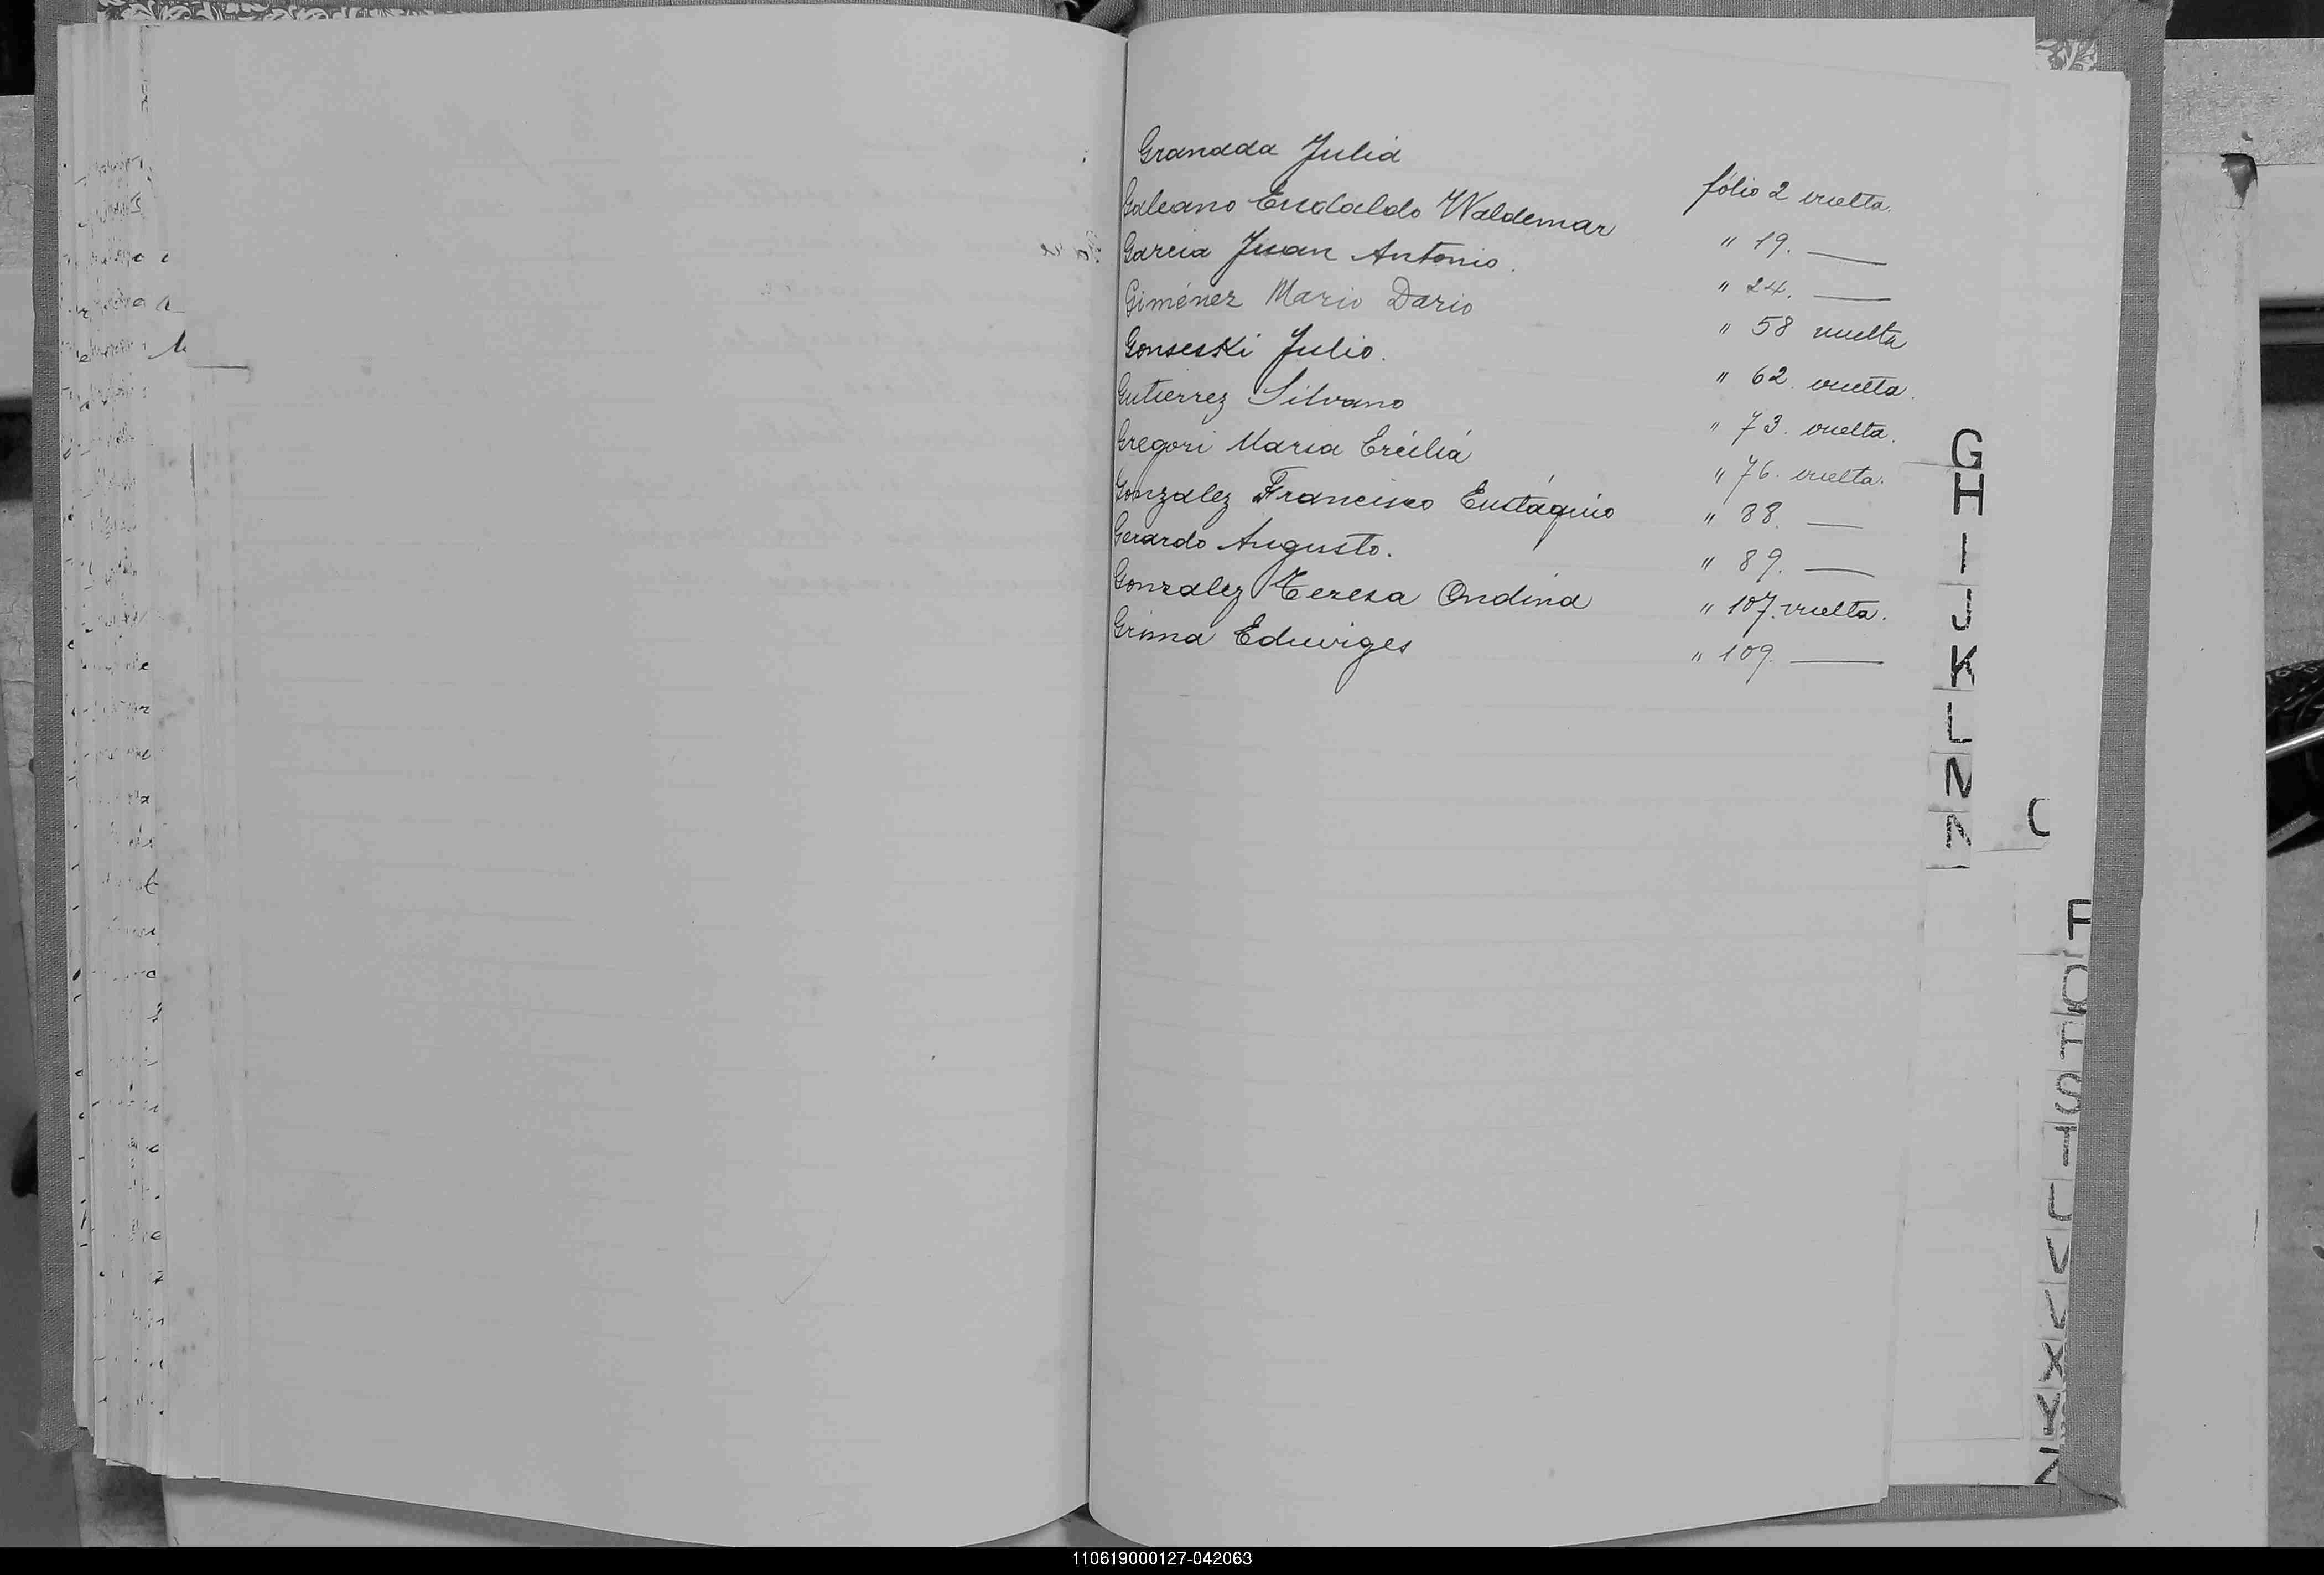 Granada Julia fólio 2 vuelta.
Galeano Eudaldo Waldemar " 19. —
Garcia Juan Antonio. " 24. —
Giménez Mario Dario " 58 vuelta
Gonseski Julio. " 62. vuelta.
Gutierrez Silvano " 73. vuelta.
Gregori Maria Ercilia " 76. vuelta.
Gonzalez Francisco Eustáquio " 88. —
Gerardo Augusto. " 89. —
Gonzalez Teresa Ondina " 107. vuelta.
Grima Eduviges " 109. —
G
H
I
J
K
L
N
N
S
V
X
Y
110619000127-042063